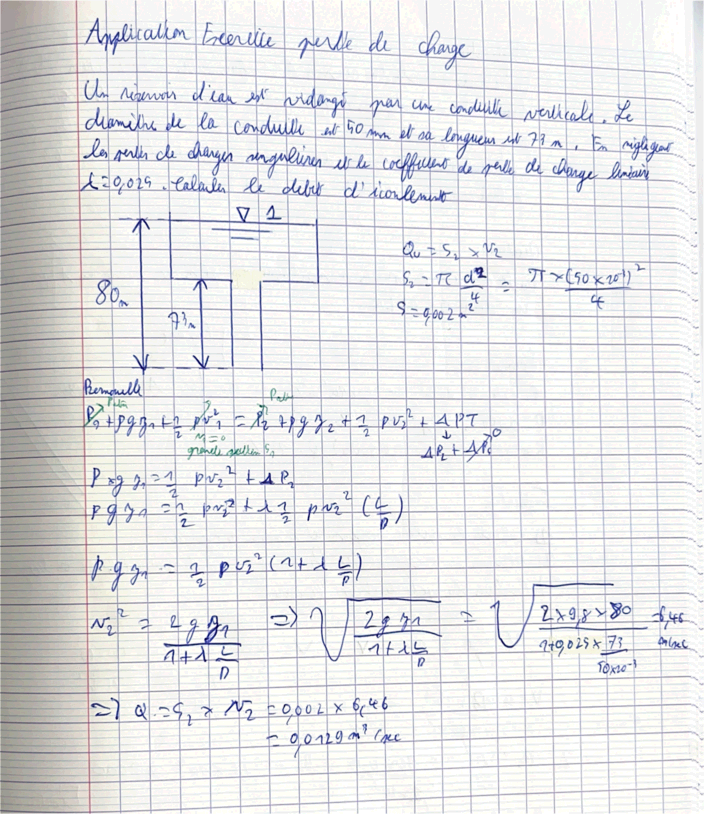 Application Exercice perte de charge
Un réservoir d'eau est vidangé par une conduite verticale. Le
diamètre de la conduite est 50 mm et sa longueur est 73 m. En négligeant
les pertes de charges singulières et le coefficient de perte de charge linéaire
λ = 0,025. Calculer le débit d'écoulement
∇ 1
80m
73m
Qv = S2 × v2
S2 = π d²/4 = π × (50 × 10⁻³)²/4
S = 0,002 m²
Bernoulli
Patm Patm
P1 + ρg z1 + 1/2 ρv1² = P2 + ρg z2 + 1/2 ρv2² + ΔPT
v1 = 0 0
grande section S1 ΔPL + ΔPs
ρ × g z1 = 1/2 ρv2² + ΔPL
ρ g z1 = 1/2 ρv2² + λ 1/2 ρ v2² (L/D)
ρ g z1 = 1/2 ρ v2² (1 + λ L/D)
v2² = 2 g z1/(1 + λ L/D) => √(2 g z1/(1 + λ L/D)) = √(2 × 9,8 × 80/(1 + 0,025 × 73/(50 × 10⁻³))) = 6,46 m/sec
=> Q = S2 × v2 = 0,002 × 6,46
= 0,0129 m³/sec